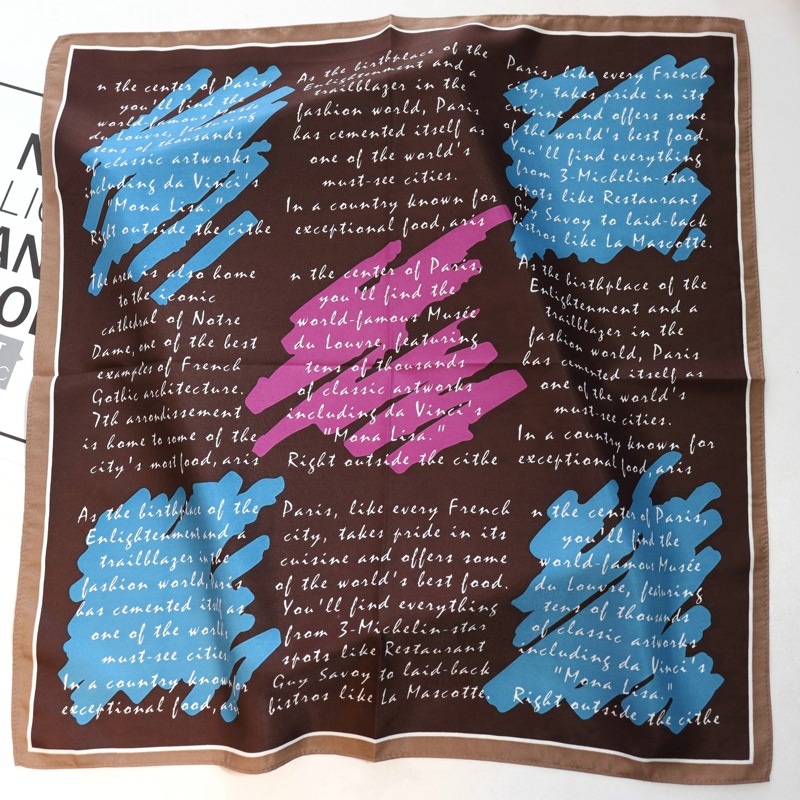 n the center of Paris,
you'll find the
world-famous Musée
du Louvre, featuring
tens of thousands
of classic artworks
including da Vinci's
"Mona Lisa."
Right outside the cithe
As the birthplace of the
Enlightenment and a
trailblazer in the
fashion world, Paris
has cemented itself as
one of the world's
must-see cities.
In a country known for
exceptional food, aris
Paris, like every French
city, takes pride in its
cuisine and offers some
of the world's best food.
You'll find everything
from 3-Michelin-star
spots like Restaurant
Guy Savoy to laid-back
bistros like La Mascotte.
The area is also home
to the iconic
cathedral of Notre
Dame, one of the best
examples of French
Gothic architecture.
7th arrondissement
is home to some of the
city's most food, aris
n the center of Paris,
you'll find the
world-famous Musée
du Louvre, featuring
tens of thousands
of classic artworks
including da Vinci's
"Mona Lisa."
Right outside the cithe
As the birthplace of the
Enlightenment and a
trailblazer in the
fashion world, Paris
has cemented itself as
one of the world's
must-see cities.
In a country known for
exceptional food, aris
As the birthplace of the
Enlightenment and a
trailblazer in the
fashion world, Paris
has cemented itself as
one of the world's
must-see cities
In a country known for
exceptional food, aris
Paris, like every French
city, takes pride in its
cuisine and offers some
of the world's best food.
You'll find everything
from 3-Michelin-star
spots like Restaurant
Guy Savoy to laid-back
bistros like La Mascotte.
n the center of Paris,
you'll find the
world-famous Musée
du Louvre, featuring
tens of thousands
of classic artworks
including da Vinci's
"Mona Lisa."
Right outside the cithe